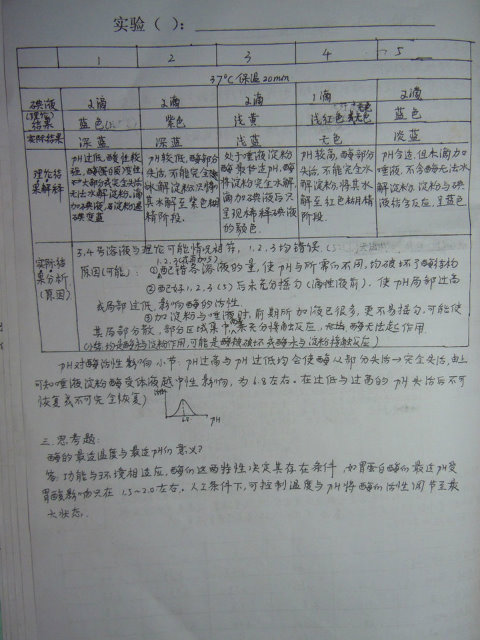 实验（ ）：
1 2 3 4 5
37°C保温20min
碘液 2滴 2滴 2滴 1滴 2滴
(理论)结果 蓝色 紫色 浅黄 浅红色 蓝色
实际结果 深蓝 深蓝 浅蓝 无色 淡蓝
理论结果解释
pH过低,酶
pH较低,酶部分失活,不能完全水解淀粉,只将其水解至紫色糊精阶段.
处于唾液淀粉酶最适pH,酶将淀粉完全水解滴加碘液后只呈现稀释碘液的颜色.
pH较高,酶部分失活,不能完全水解淀粉,将其水解至红色糊精阶段.
pH合适,但未滴加唾液,不含酶无法水解淀粉,淀粉与碘液结合反应,呈蓝色
实际结果分析(原因)
3,4号溶液与理论可能情况相符,1,2,3均错误
原因(可能):①配错各溶液的量,使pH与所需的不同,均破坏了酶结构
②配好1,2,3(5)后未充分摇匀(滴唾液前).使pH局部过高
或局部过低,影响酶的活性.
③加淀粉与唾液时,前期所加液已很多,更不易摇匀.可能使
其局部分散,部分区域集中,未充分接触反应,酶无法起作用
pH对酶活性影响小节:pH过高与pH过低均会使酶从部分失活→完全失活,由上
可知唾液淀粉酶受体液越中性影响,为6.8左右.在过低与过高的pH失活后不可
恢复或不可完全恢复)
6.8 pH
三.思考题:
酶的最适温度与最适pH的意义?
答:功能与环境相适应,酶的这两特性决定其存在条件,如胃蛋白酶的最适pH受
胃酸影响只在1.5~2.0左右.人工条件下,可控制温度与pH将酶的活性调节至最
大状态.